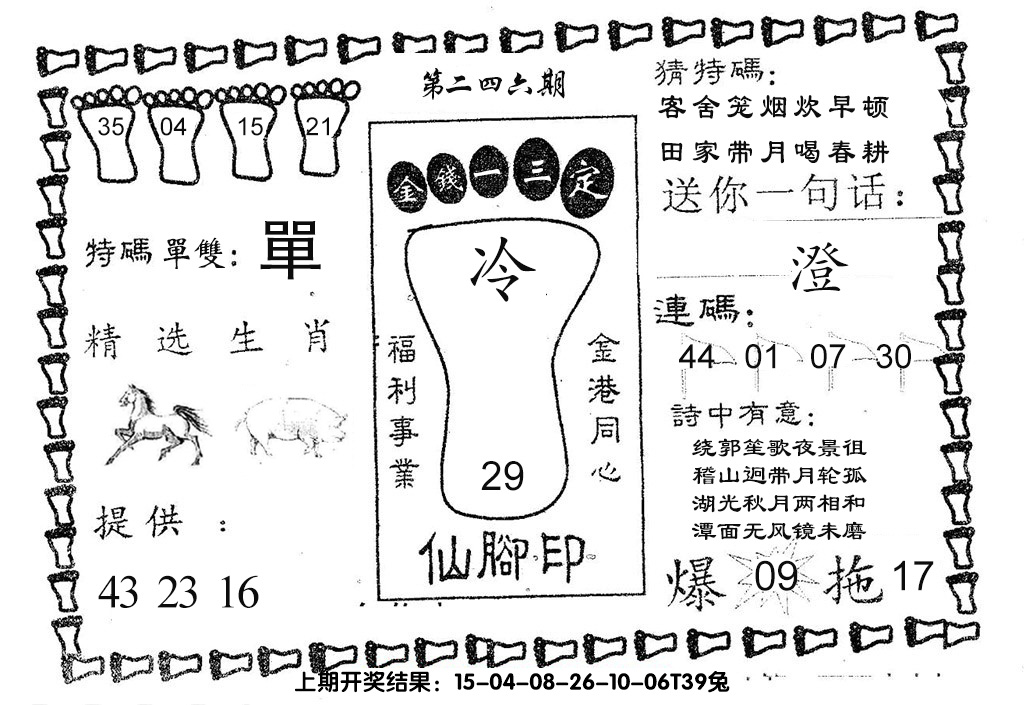 第二四六期
35 04 15 21
特碼單雙：單
精选生肖
提供：
43 23 16
金錢一三定
冷
29
福利事業
金港同心
仙腳印
猜特碼：
客舍笼烟炊早顿
田家带月喝春耕
送你一句话：
澄
連碼：
44 01 07 30
詩中有意：
绕郭笙歌夜景徂
稽山迥带月轮孤
湖光秋月两相和
潭面无风镜未磨
爆 09 拖 17
上期开奖结果：15-04-08-26-10-06T39兔